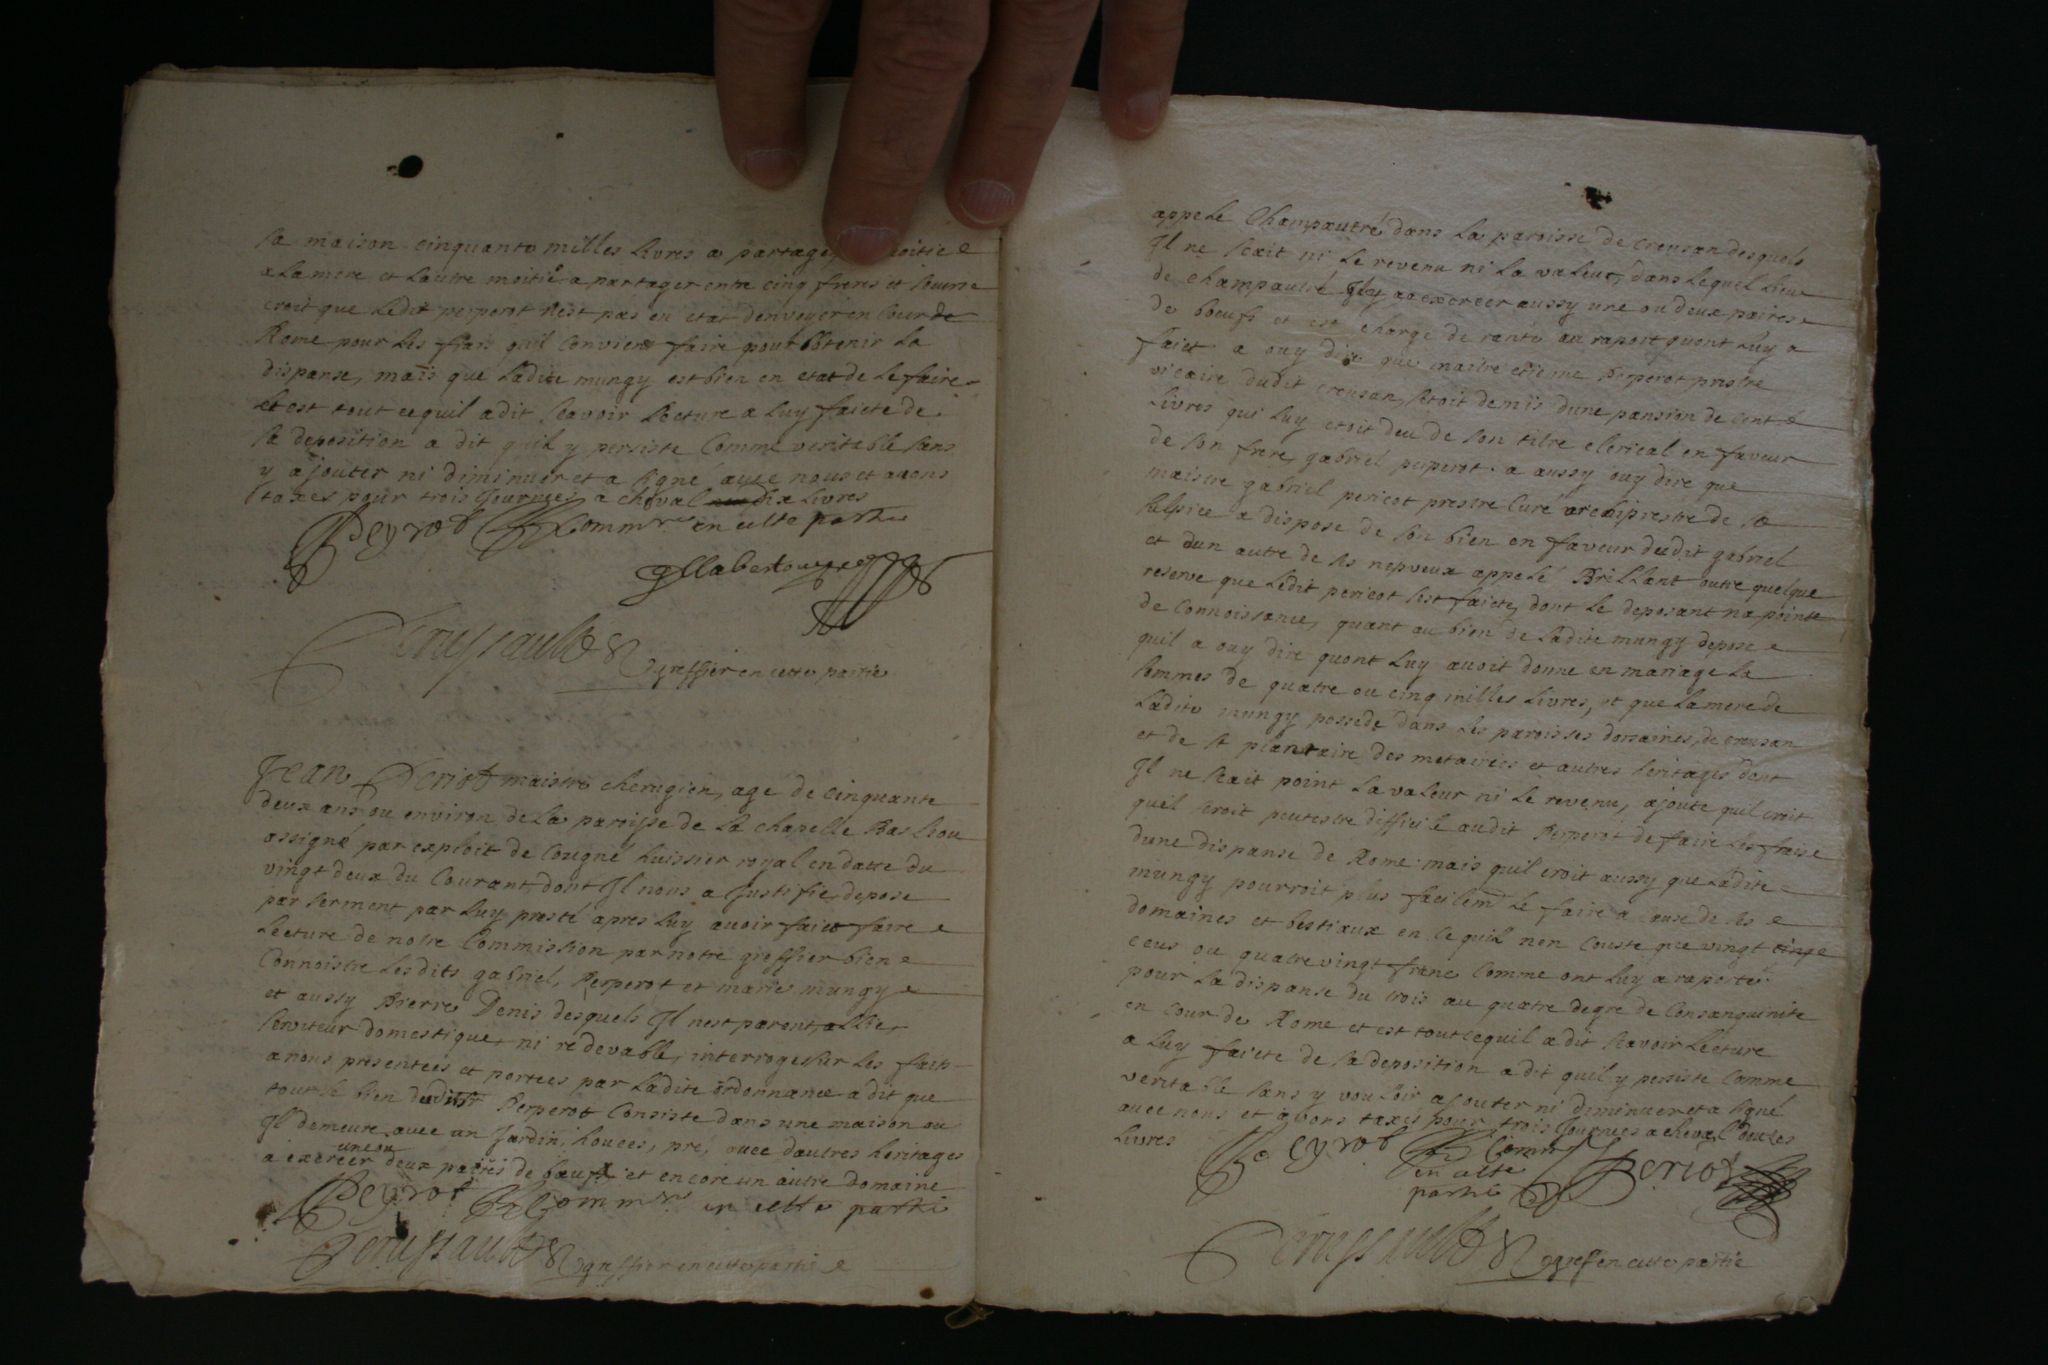 sa maison cinquante milles livres a partager moitie
a la mere et lautre moitié a partager entre cinq freres et soeurs
croit que ledit perperot nest pas en etat denvoyer en Cour de
Rome pour les frais quil convient faire pour obtenir la
dispanse, mais que ladite mungy est bien en etat de le faire
et est tout ce quil a dit scavoir lecture a luy faicte de
sa deposition a dit quil y persiste comme veritable sans
y ajouter ni diminuer et a signé avec nous et avons
taxes pour trois journees a cheval dix livres
Peyrot Commre en cette partie
Labesse
Derussault
greffier en cette partie
Jean Periot maistre cherugien, age de cinquante
deux ans ou environ de la paroisse de la chapelle Basleou
assigné par exploit de Cougné huissier royal en datte du
vingt deux du Courant dont Il nous a Justifie, depose
par serment par luy presté apres luy avoir faict faire
lecture de notre Commission par notre greffier bien
Connoistre lesdits gabriel, Perperot et marie mungy
et aussy Pierre Denis desquels Il nest parent, allie,
serviteur domestique, ni redevable, interroge sur les faits
a nous presentées et portees par ladite ordonnance a dit que
tout le bien dudit Perperot Consiste dans une maison ou
Il demeure avec un Jardin, houces, pré, avec dautres heritages
une ou
a exercer deux paires de boeufs et encore un autre domaine
Peyrot Commre en cette partie
Derussault greffier en cette partie
appele Champautré dans la paroisse de creusan desquels
Il ne scait ni le revenu ni la valeur, dans lequel lieu
de Champautré Il y a a exercer aussy une ou deux paires
de boeufs et est chargé de rante au raport quont luy a
faict a ouy dire que maitre etienne Perperot prestre
vicaire dudit creusan, setoit demis dune pansion de cent
livres qui luy etoit deu de son titre clerical en faveur
de son frere gabriel perperot a aussy ouy dire que
maistre gabriel pericot prestre Curé archiprestre de
a dispose de son bien en faveur dudit gabriel
et dun autre de ses nepveux appelé Brillant outre quelque
reserve que ledit pericot sest faicte, dont le deposant na point
de Connoissance, quant au bien de ladite mungy depose
quil a ouy dire quont luy avoit donne en mariage la
sommes de quatre ou cinq milles livres, et que la mere de
ladite mungy possede dans les paroisses dorsaines, de creusan
et de st plantaire des metairies et autres heritages dont
Il ne scait point la valeur ni le revenu, ajoute quil croit
quil seroit peutestre difficile audit Perperot de faire les frais
dune dispanse de Rome mais quil croit aussy que ladite
mungy pourroit plus facilemt le faire a cause de ses
domaines et bestiaux en ce quil nen couste que vingt cinq
ecus ou quatre vingt franc comme ont luy a raporté
pour la dispanse du trois au quatre degre de Consanguinite
en Cour de Rome et est tout cequil a dit scavoir lecture
a luy faicte de sa deposition a dit quil y persiste comme
veritable sans y vouloir ajouter ni diminuer et a signé
avec nous et avons taxes pour trois Journees a cheval douzes
livres
Peyrot Commre
en cette
partie
Periot
Derussault gref en cette partie